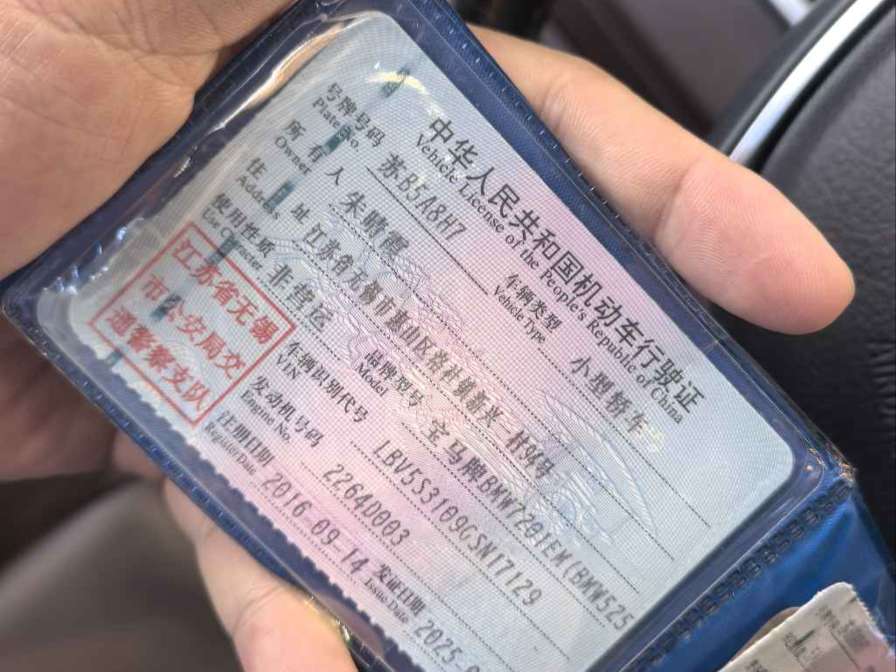 中华人民共和国机动车行驶证
Vehicle License of the People's Republic of China
号牌号码 苏B5A8H7 车辆类型 小型轿车
Plate No. Vehicle Type
所有人 朱晴霞
Owner
住址 江苏省无锡市惠山区洛社镇新兴村
Address
使用性质 非营运 品牌型号 宝马牌BMW7201EM(BMW525
Use Character Model
江苏省无锡
市公安局交
通警察支队
车辆识别代号 LBV5S3109GSN17129
VIN
发动机号码 2264D003
Engine No.
注册日期 2016-09-14 发证日期 2025-
Register Date Issue Date